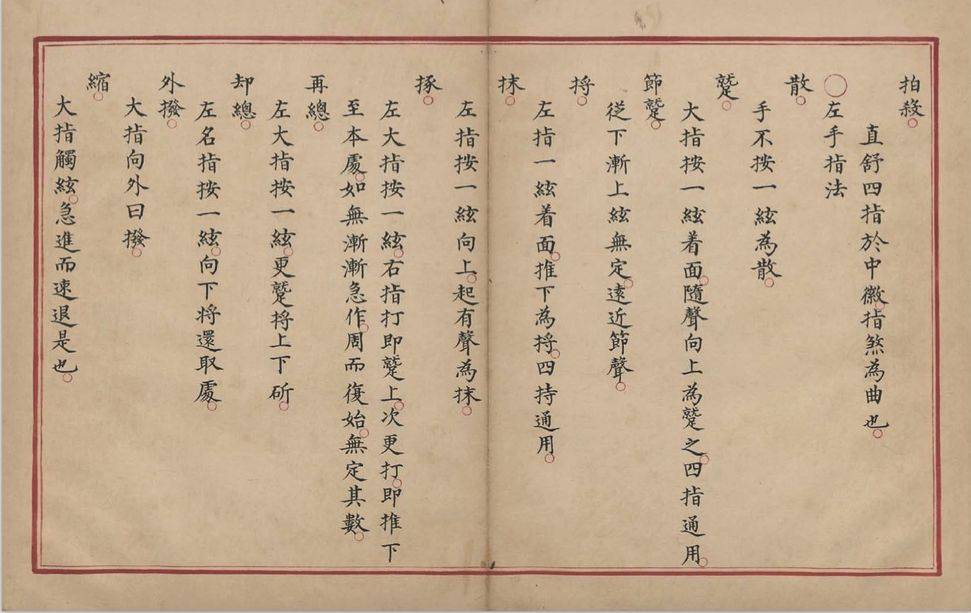 拍殺。
直舒四指於中徽。指煞為曲也。
○左手指法
散。
手不按一絃為散。
蹵。
大指按一絃着面。隨聲向上為蹵之。四指通用。
節蹵。
從下漸上絃無定。遠近節聲。
捋。
左指一絃着面。推下為捋。四持通用。
抹。
左指按一絃向上。起有聲為抹。
㧻。
左大指按一絃。右指打即蹵上。次更打。即推下
至本處。如無漸漸急作。周而復始。無定其數。
再總。
左大指按一絃。更蹵捋上下㪽。
却總。
左名指按一絃。向下捋還取處。
外撥。
大指向外曰撥。
縮。
大指觸絃。急進而速退是也。